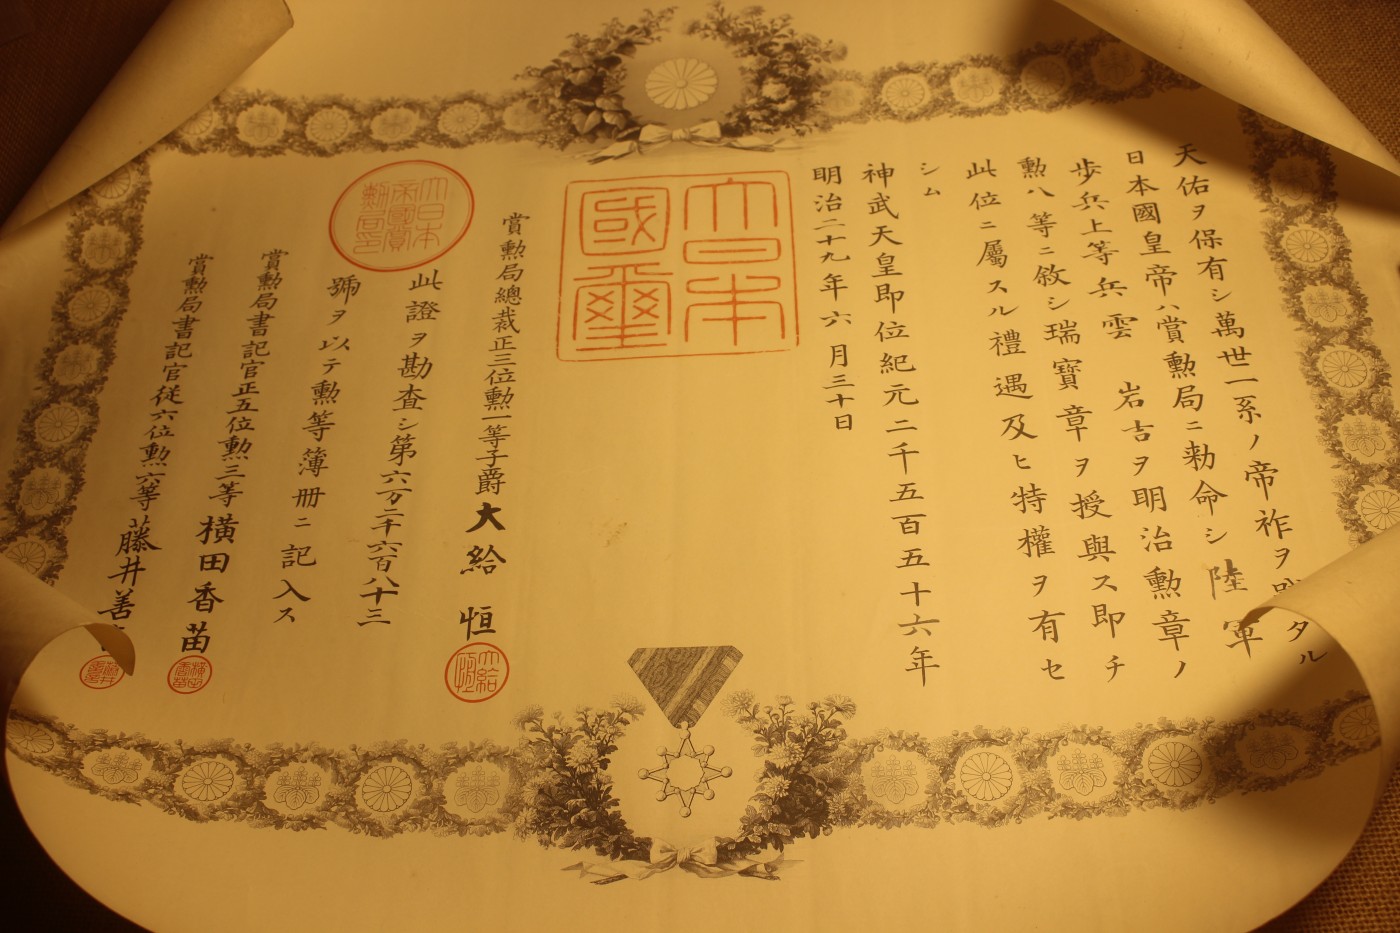 天佑ヲ保有シ萬世一系ノ帝祚ヲタル
日本國皇帝ハ賞勲局ニ勅命シ陸軍
歩兵上等兵雲 岩吉ヲ明治勲章ノ
勲八等ニ敘シ瑞寶章ヲ授與ス即チ
此位ニ屬スル禮遇及ヒ特權ヲ有セ
シム
神武天皇即位紀元二千五百五十六年
明治二十九年六月三十日
大日本
國璽
賞勲局總裁正三位勲一等子爵大給 恒
大給恒
此證ヲ勘査シ第六万二千六百八十三
號ヲ以テ勲等簿冊ニ記入ス
大日本
帝國賞
勲局印
賞勲局書記官正五位勲三等横田香苗
賞勲局書記官從六位勲六等藤井善